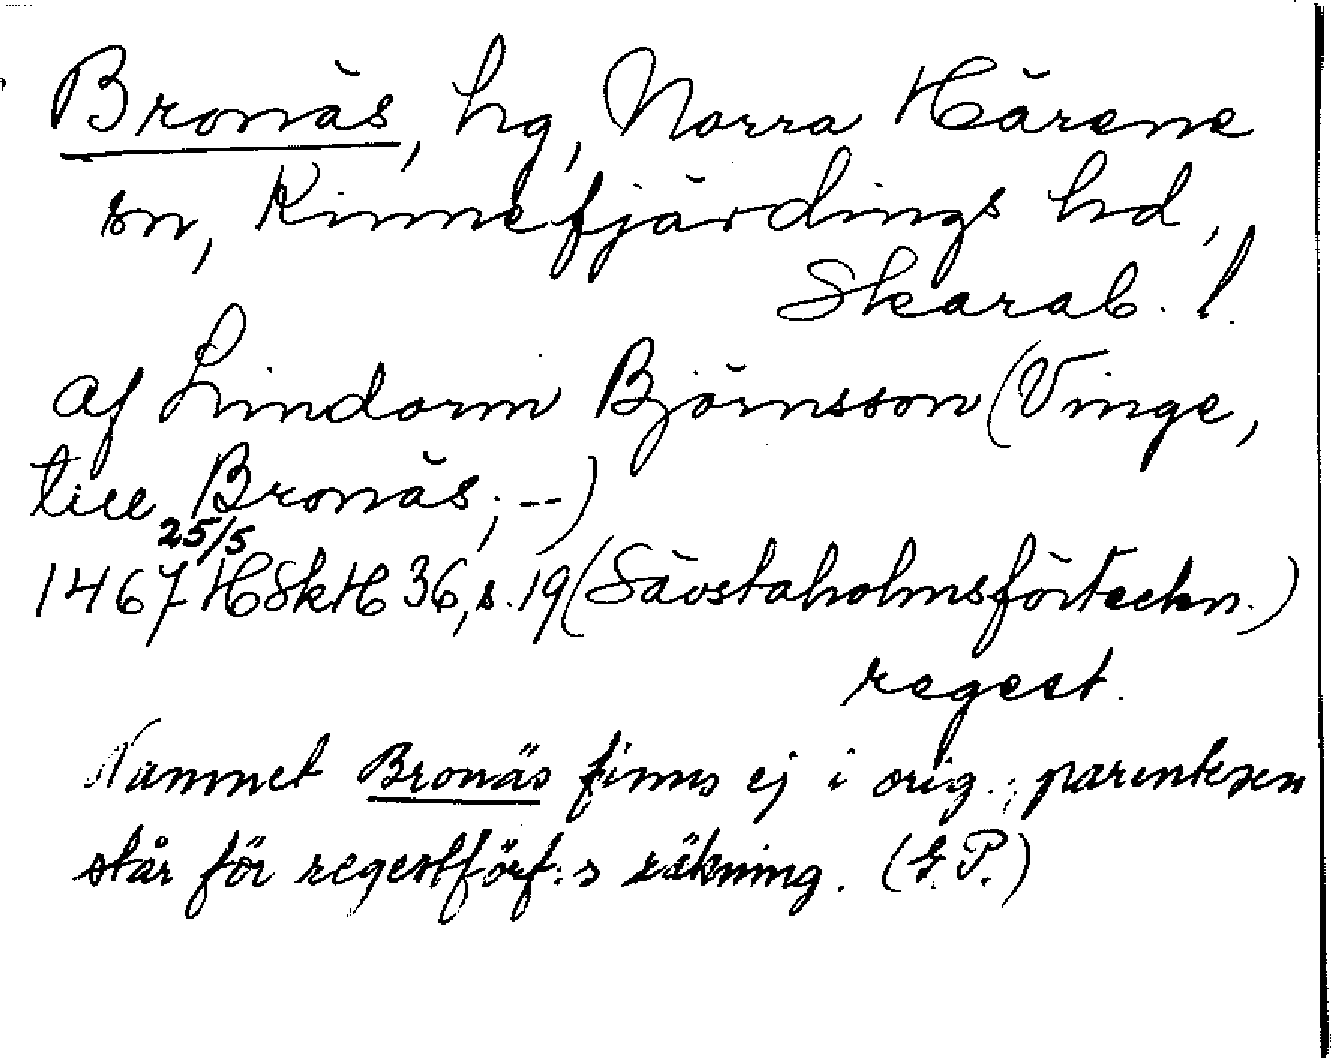 Bronäs, hg, Norra Härene
sn, Kinnefjärdings hd,
Skarab. l.
af Lindorm Björnsson (Vinge,
till Bronäs; --)
25/5
1467 HSkH 36, s. 19 (Sävstaholmsförteckn.)
regest.
Namnet Bronäs finns ej i orig.; parentesen
står för regestförf:s räkning. (G.P.)